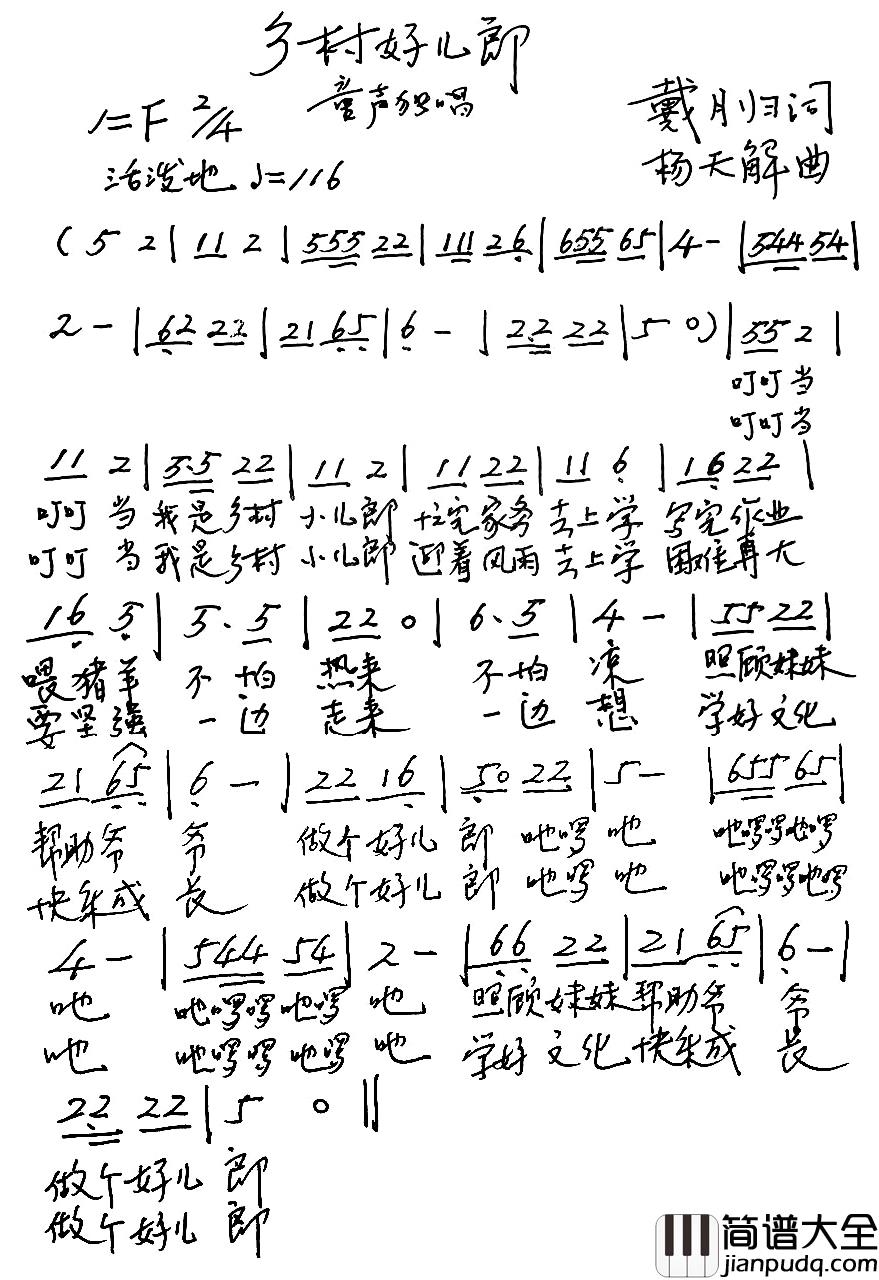 乡村好儿郎
童声独唱
1=F 2/4
戴月归词
活泼地 ♩=116
杨天解曲
( 5 2 | 11 2 | 555 22 | 111 26 | 655 65 | 4 - | 544 54 |
2 - | 62 22 | 21 65 | 6 - | 2.2 22 | 5 0) | 55 2 |
叮叮当
叮叮当
11 2 | 5.5 22 | 11 2 | 11 22 | 11 6 | 16 22 |
叮叮当 我是乡村 小儿郎 忙完家务 去上学 写完作业
叮叮当 我是乡村 小儿郎 迎着风雨 去上学 困难再大
16 5 | 5. 5 | 22 0 | 6. 5 | 4 - | 55 22 |
喂猪羊 不怕 热来 不怕 凉 照顾妹妹
要坚强 一边 走来 一边 想 学好文化
21 65 | 6 - | 22 16 | 50 22 | 5 - | 655 65 |
帮助爷 爷 做个好儿 郎 吔啰 吔 吔啰啰吔啰
快乐成 长 做个好儿 郎 吔啰 吔 吔啰啰吔啰
4 - | 544 54 | 2 - | 66 22 | 21 65 | 6 - |
吔 吔啰啰吔啰 吔 照顾妹妹 帮助爷 爷
吔 吔啰啰吔啰 吔 学好文化 快乐成 长
22 22 | 5 0 ||
做个好儿 郎
做个好儿 郎
简谱大全
jianpudq.com